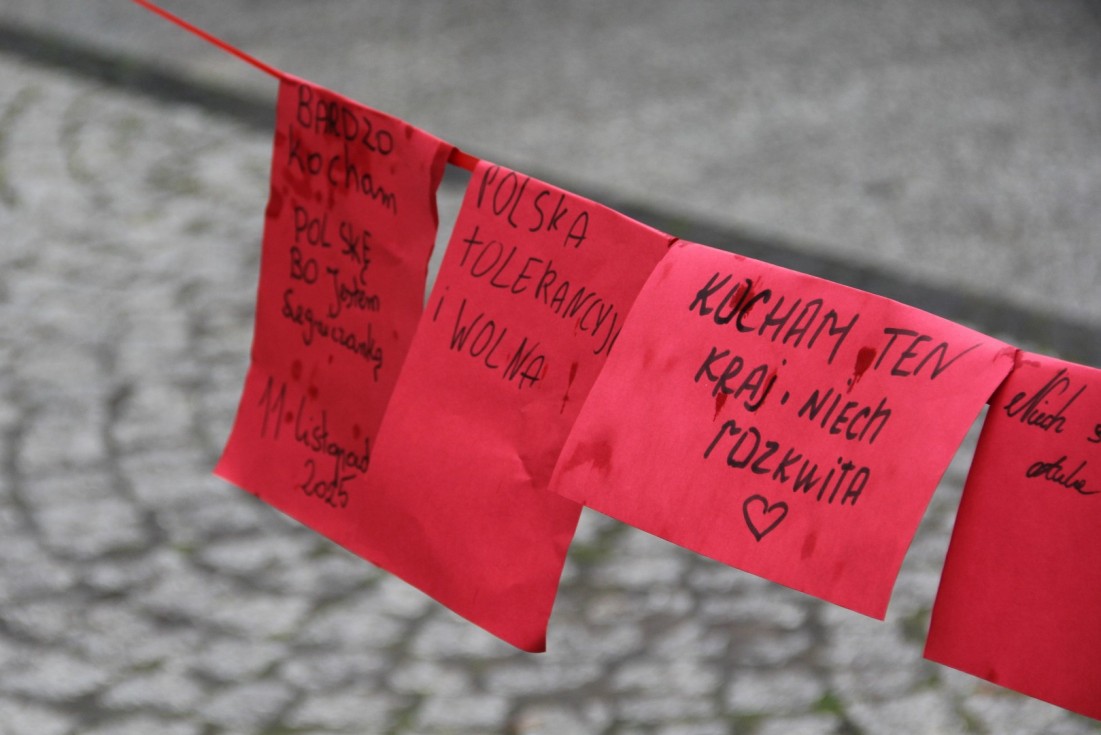 BARDZO
Kocham
POLSKĘ
BO Jestem
Legniczanką
11 listopad
2025
POLSKA
TOLERANCYJ
i WOLNA!
KOCHAM TEN
KRAJ. NIECH
ROZKWITA
Niech